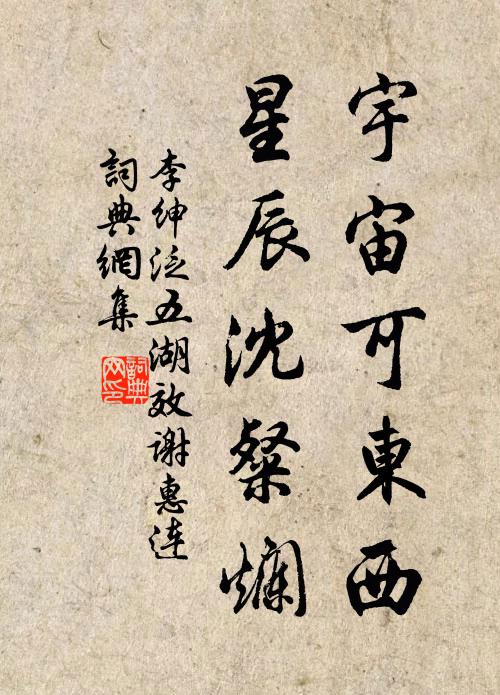 宇宙可東西
星辰沈粲爛
李紳泛五湖效謝惠连
詞典網集
詞典網印